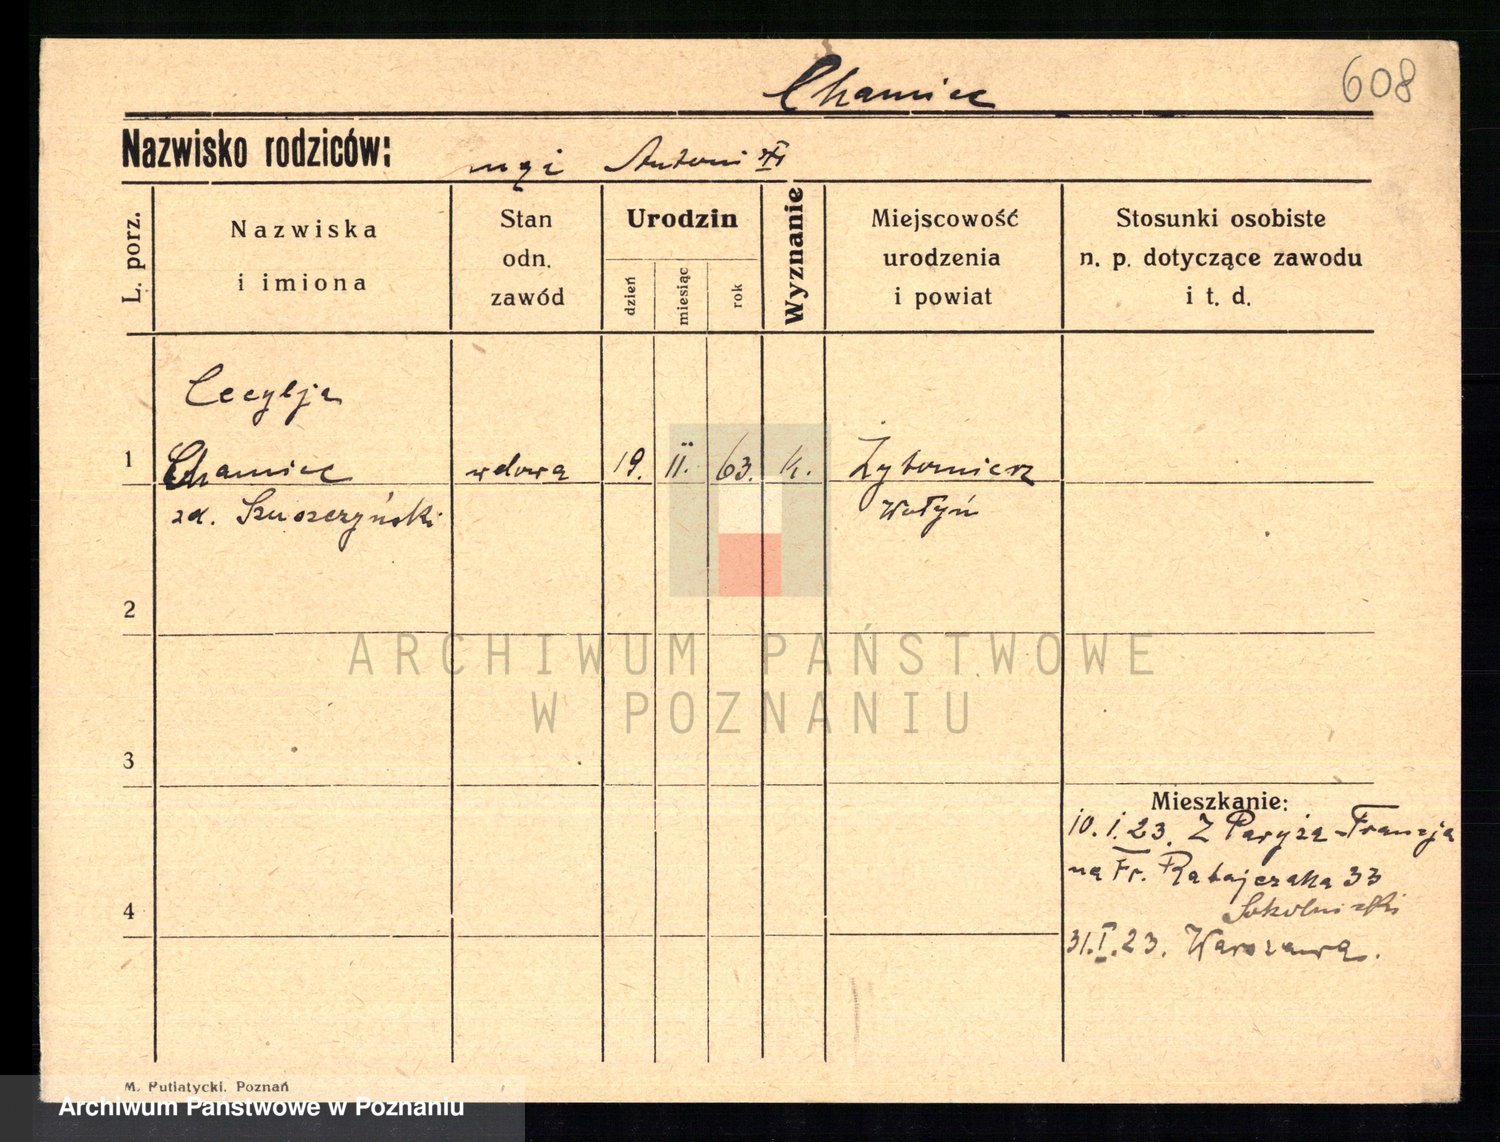 Chamiec
608
Nazwisko rodziców:
mąż Antoni
L. porz.
Nazwiska
i imiona
Stan
odn.
zawód
Urodzin
dzień
miesiąc
rok
Wyznanie
Miejscowość
urodzenia
i powiat
Stosunki osobiste
n. p. dotyczące zawodu
i t. d.
Cecylja
1 Chamiec wdowa 19. II. 63. k. Żytomierz
zd. Szuszczyński Wołyń
2
ARCHIWUM PAŃSTWOWE
W POZNANIU
3
Mieszkanie:
10. I. 23. Z Paryża - Francja
na Fr. Ratajczaka 33
Sokolnicki
4
31. I. 23. Warszawa.
M. Putiatycki. Poznań
Archiwum Państwowe w Poznaniu